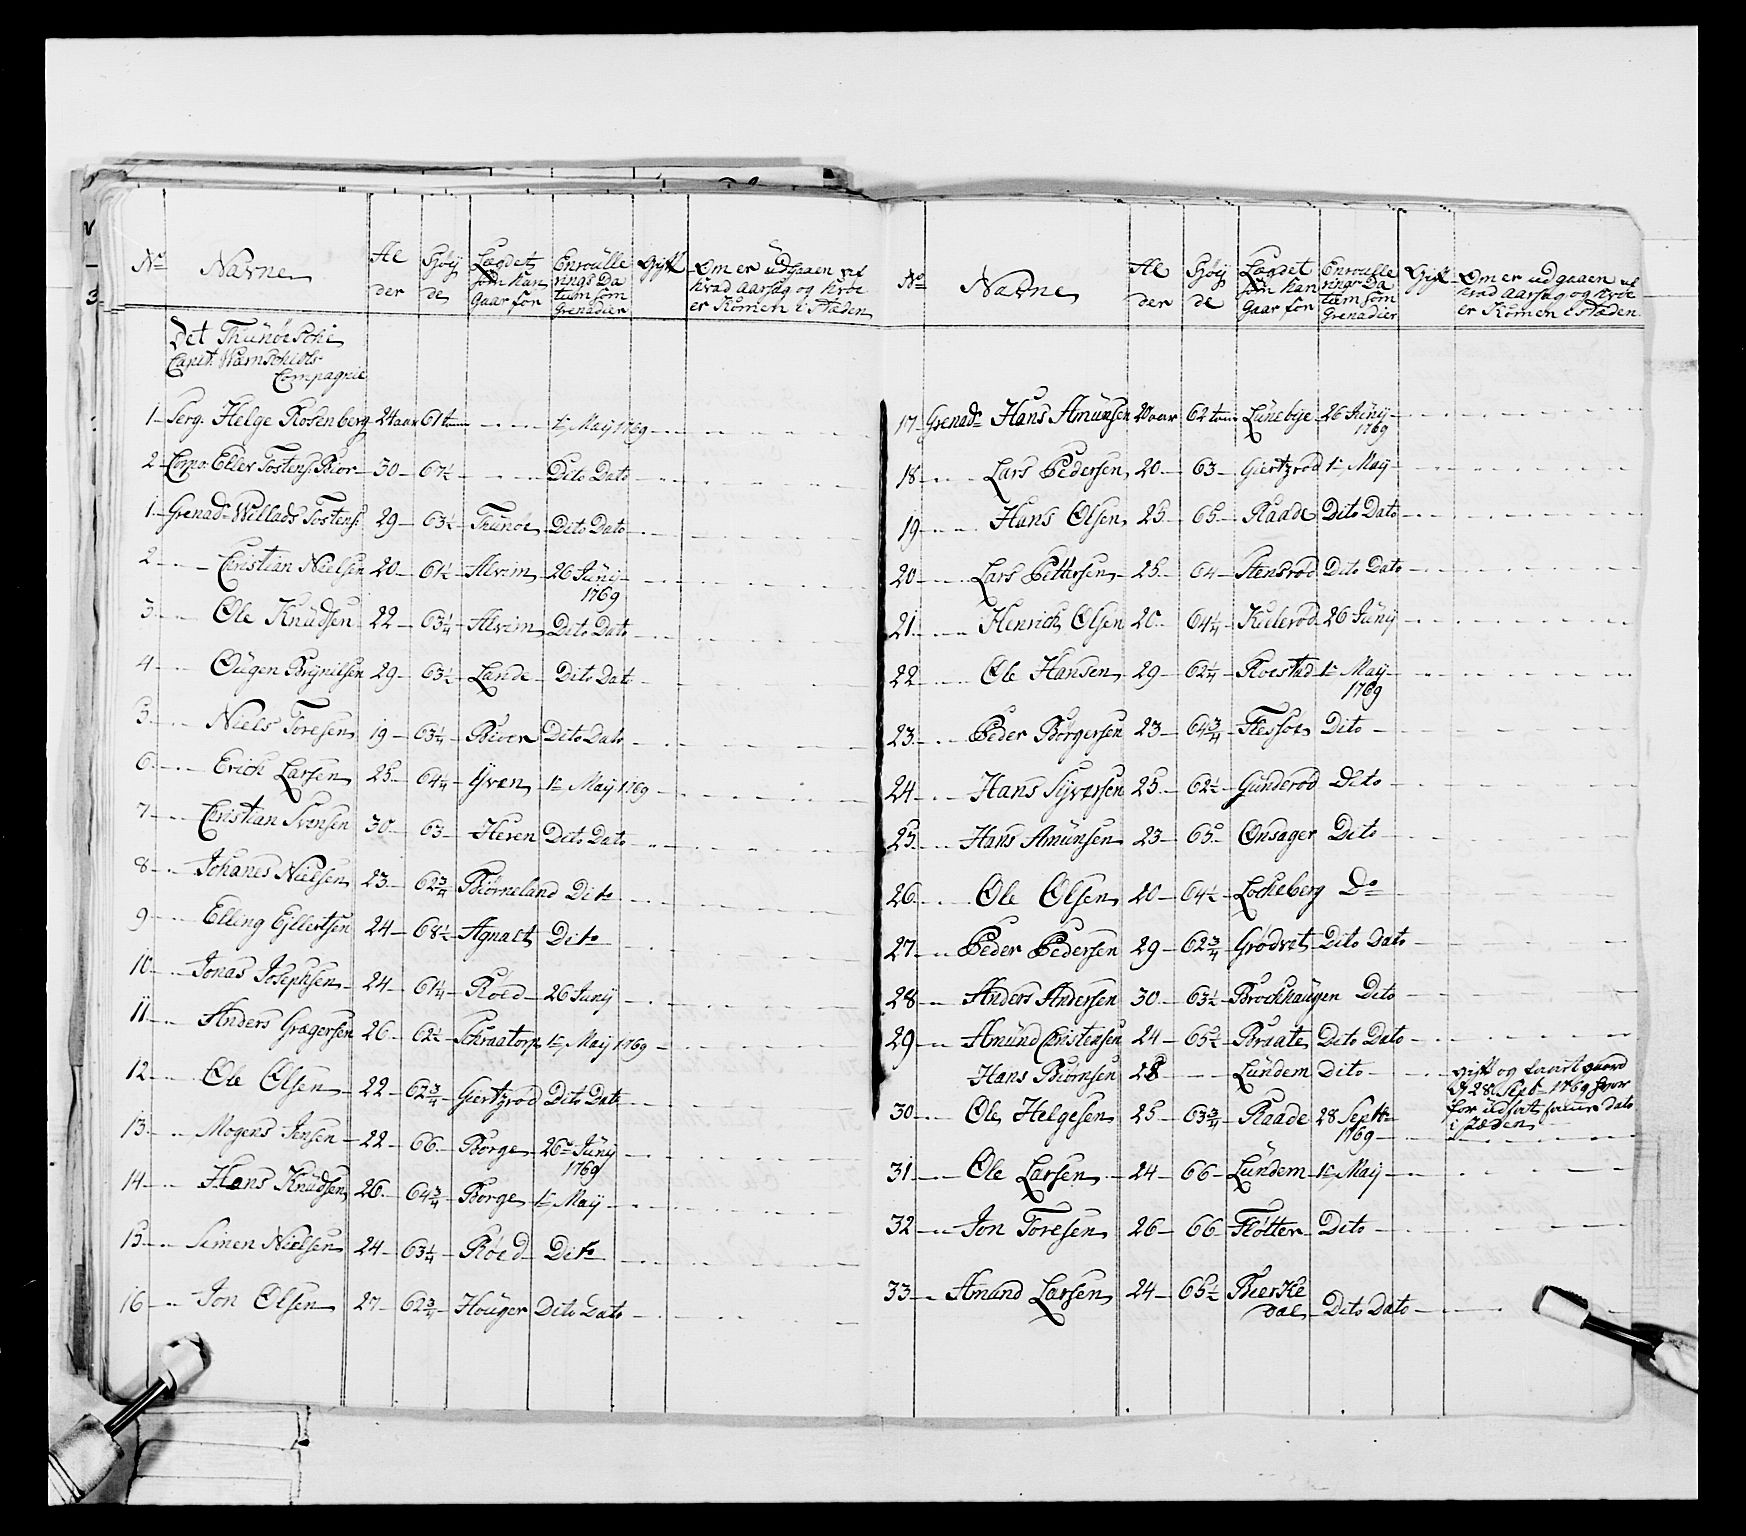 No Navne Al der Høy de Lægdet som han gaar for Enroulle rings Da tum som Grenadier Gift Om er udgaaen ved hvad aarsag og hvor er Komen i Stæden
Det Thunøeske
Capit: Compagnie
1 Serg. Helge Rosenberg 24 aar 61 tom 1te Maij 1769
2 Corpo: Eller Tostens: Bior 30 67½ Dito Dato
1 Grenad: Willads Tostens: 29 63½ Thunøe Dito Dato
2 Christian Nielsen 20 61½ Alvim 26 Junij 1769
3 Ole Knudsen 22 63¼ Alvim Dito Dato
4 Ougen Brynilsen 29 63½ Lande Dito Dato
5 Niels Toresen 19 63¼ Bioer Dito Dato
6 Erich Larsen 25 64¼ Yven 1te Maij 1769
7 Christian Svensen 30 63 Heren Dito Dato
8 Johanes Nielsen 23 62¾ Biørneland Dito
9 Elling Ejllertsen 24 68½ Agnalt Dito
10 Jonas Josephsen 24 61¼ Roed 26 Junij
11 Anders Grægersen 26 62½ Schraatorp 1te Maij 1769
12 Ole Olsen 22 62¾ Giertzrød Dito Dato
13 Mogens Jensen 22 66 Borge 26de Junij 1769
14 Hans Knudsen 26 64¾ Borge 1te Maij
15 Simen Nielsen 24 63¼ Røed Dito
16 Jon Olsen 27 62¾ Houger Dito Dato
No Navne Al der Høy de Lægdet som han gaar for Enroulle rings Da tum som Grenadier Gift Om er udgaaen ved hvad aarsag og hvor er Komen i Stæden
17 Grenad: Hans Amunsen 20 aar 62½ tom Lunebye 26 Junij 1769
18 Lars Pedersen 20 63 Giertzrød 1te Maij
19 Hans Olsen 25 65 Raade Dito Dato
20 Lars Pettersen 25 64 Stensrød Dito Dato
21 Henrich Olsen 20 64¼ Kielerød 26 Junij
22 Ole Hansen 29 62¼ Roestad 1te Maij 1769
23 Peder Børgersen 23 64¾ Flessøe Dito
24 Hans Syversen 25 62½ Gunderød Dito
25 Hans Amunsen 23 65 Onsager Dito
26 Ole Olsen 20 64½ Lockeberg Do
27 Peder Pedersen 29 62¾ Grødvet Dito Dato
28 Anders Andersen 30 63½ Brockhaugen Dito
29 Amund Christensen 24 65½ Braate Dito Dato
Hans Biørnsen 28 Lundem Dito gift og
28 Sept 1769 hvor
for udsat samme dato
i Stæden
30 Ole Helgesen 25 63¾ Raade 28 Septbr 1769
31 Ole Larsen 24 66 Lundem 1te Maij
32 Jon Toresen 26 66 Fløtter Dito
33 Amund Larsen 24 65½ Bierke dal Dito Dato